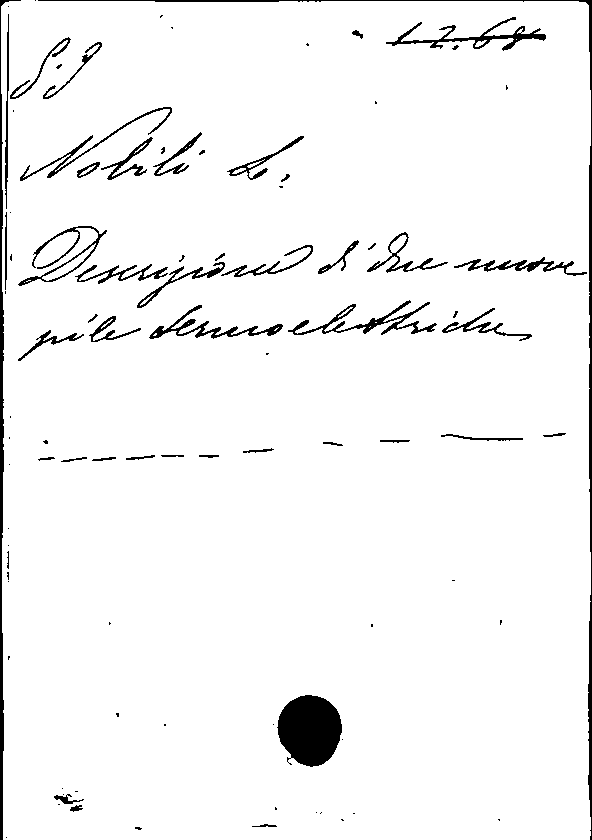 1.2.68
S. J
Nobili L.
Descrizione di due nuove
pile termoelettriche